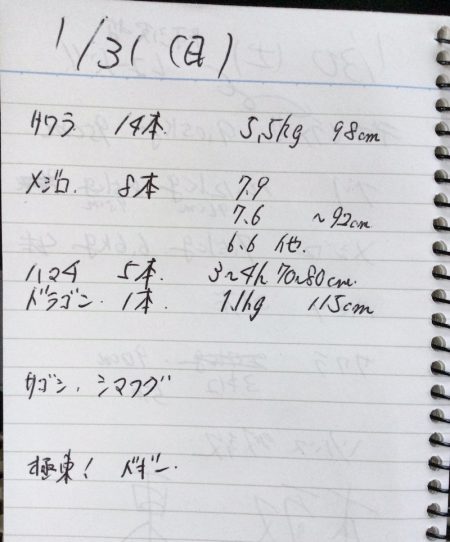 1/31 (日)
サワラ 14本. 5.5kg 98cm
メジロ. 8本 7.9
7.6 ~92cm
6.6 他.
ハマチ 5本. 3~4k 70~80cm.
ドラゴン. 1本. 1.1kg 115cm
サゴシ. シマフグ
極東! ズボズボ.